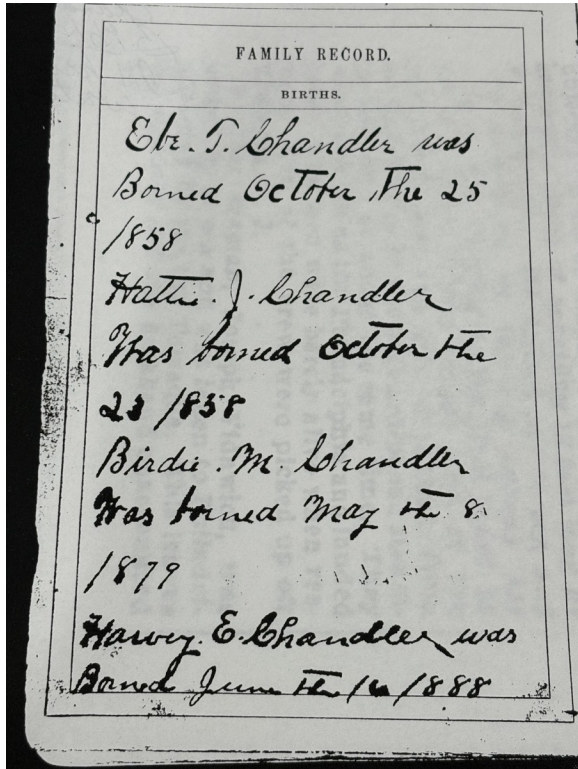 FAMILY RECORD.
BIRTHS.
Ebe. T. Chandler was
Borned October the 25
1858
Hattie. J. Chandler
Was borned October the
1858
Birdie. M. Chandler
Was borned May the 8
1879
Harvey. E. Chandler was
Borned June the 1888